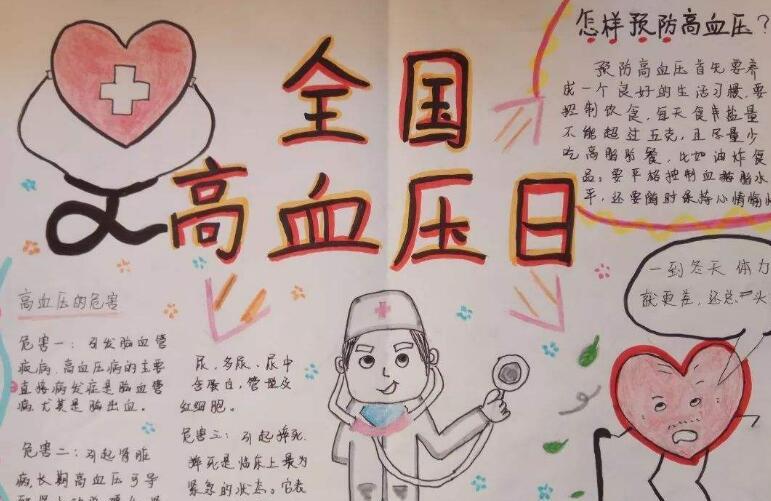 全国
高血压日
怎样预防高血压?
预防高血压首先要养
成一个良好的生活习惯,要
控制饮食,每天食用盐量
不能超过五克,且尽量少
吃高脂肪餐,比如油炸食
品。要平稳控制血糖脂水
平,还要随时保持心情愉
一到冬天 体力
就更差,还总 头
高血压的危害
危害一:引发脑血管
疾病,高血压病的主要
直接病发症是脑血管
病尤其是脑出血。
危害二:引起肾脏
病长期高血压可导
尿、多尿、尿中
含蛋白,管型及
红细胞。
危害三:引起猝死
猝死是临床上最为
紧急的状态。它表